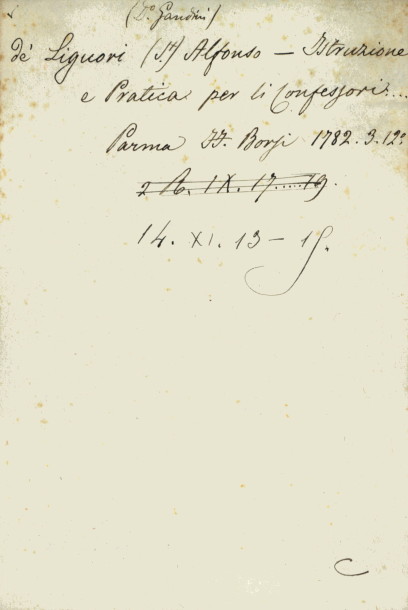 (Do. Gandini)
de' Liguori (S.t) Alfonso — Istruzione
e Pratica per li Confessori...
Parma FF. Borsi 1782. 3. 12o
2 A. IX. 17.....19.
14. XI. 13 — 15.
C